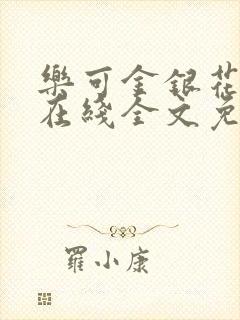 樂可金銀花
在綫全文免
羅小康